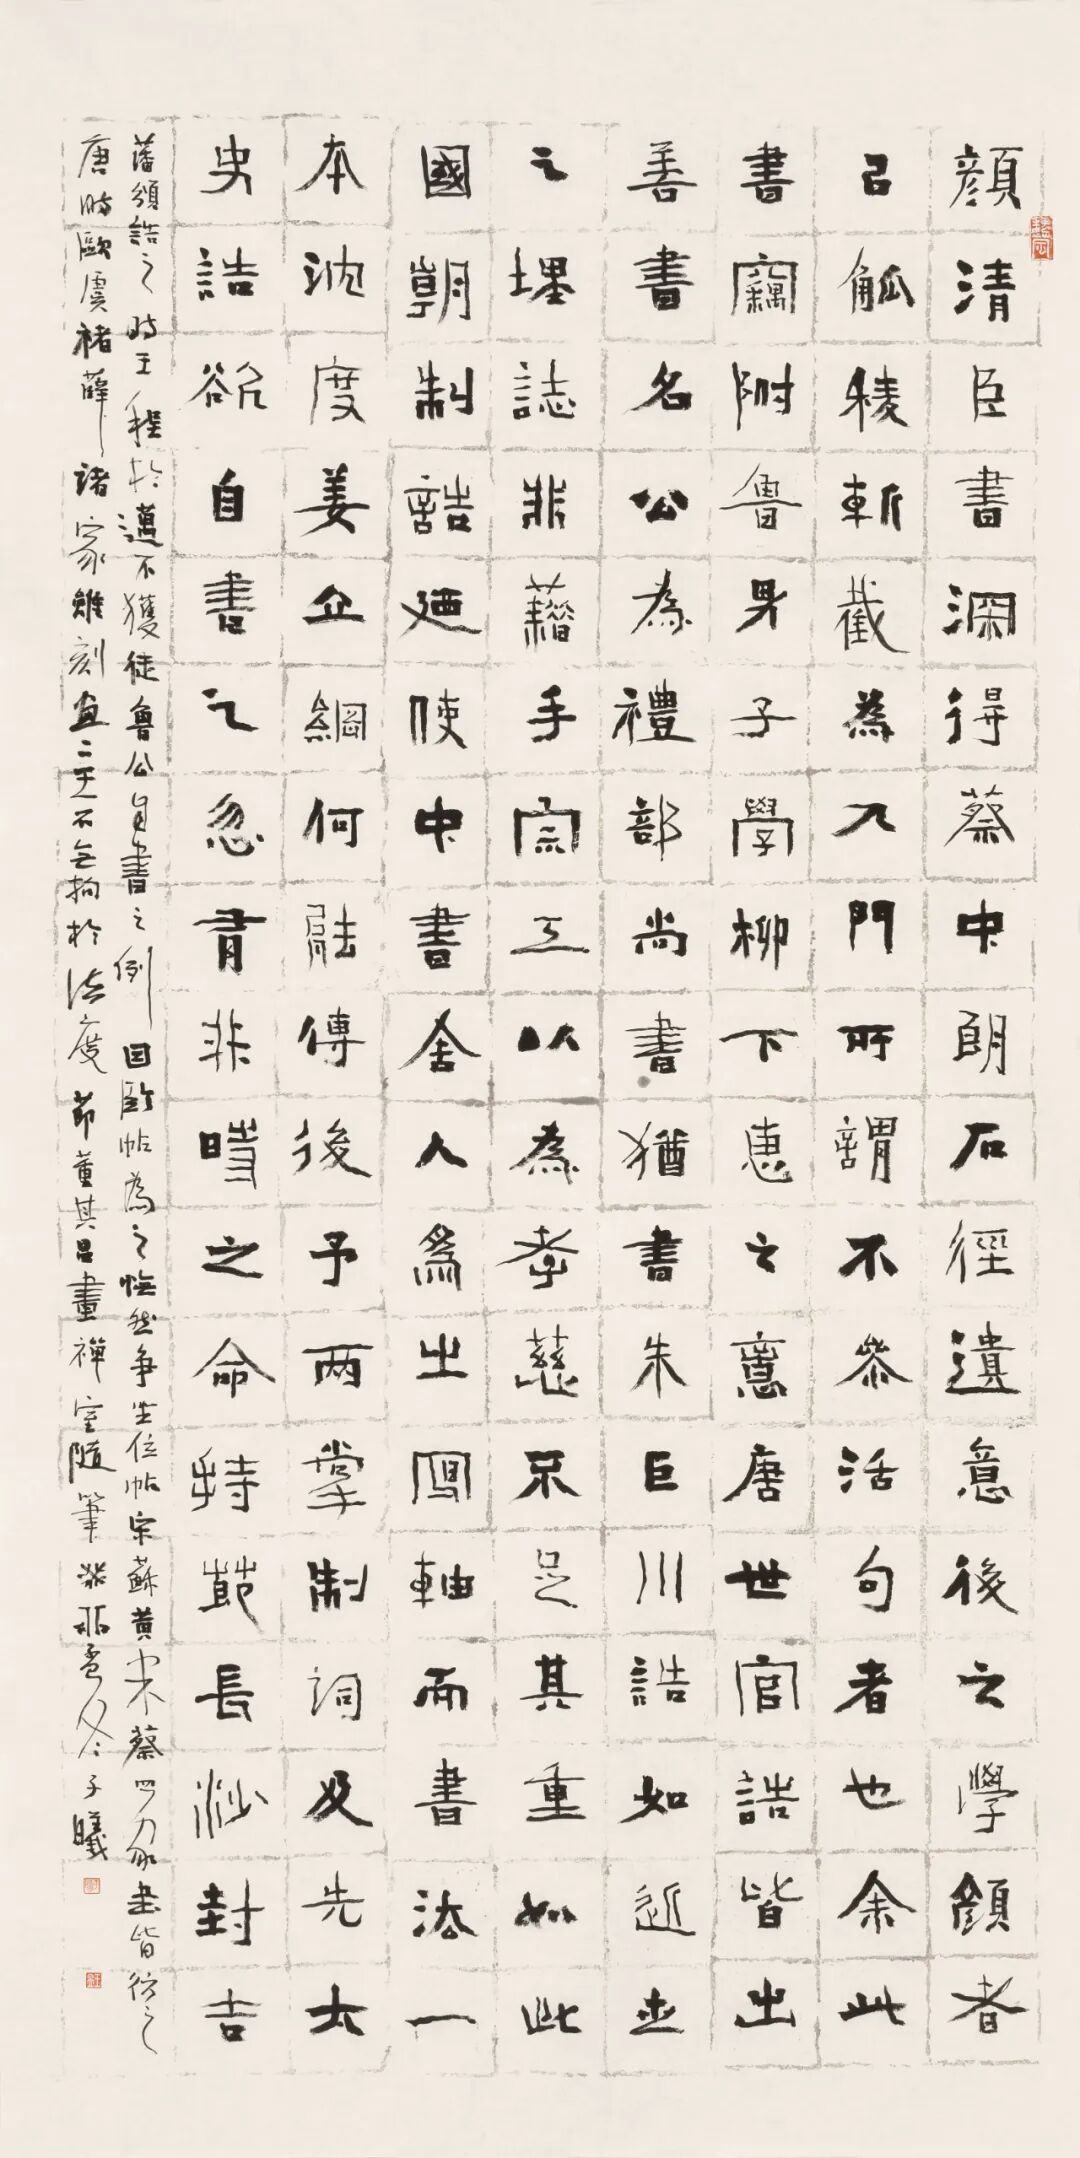 顏清臣書深得蔡中郎石徑遺意後之學顏者
㠯觚稜斬截為入門所謂不參活句者也余此
書竊附魯男子學柳下惠之意唐世官誥皆出
善書名公為禮部尚書猶書朱巨川誥如近世
之埋誌非藉手宗工以為孝慈不足其重如此
國朝制誥廼使中書舍人為出寫軸而書法一
本沈度姜企綱何能傳後予兩掌制詞及先太
史誥欲自書之忽有非時之命持節長沙封吉
藩頒誥之時王程於邁不獲徒魯公自書之例因臨帖為之憮然爭坐位帖宋蘇黃米蔡四家書皆仿之
唐時歐虞褚薛諸家雖刻畫二王不無拘於法度節董其昌畫禪室隨筆癸卯孟冬子曦